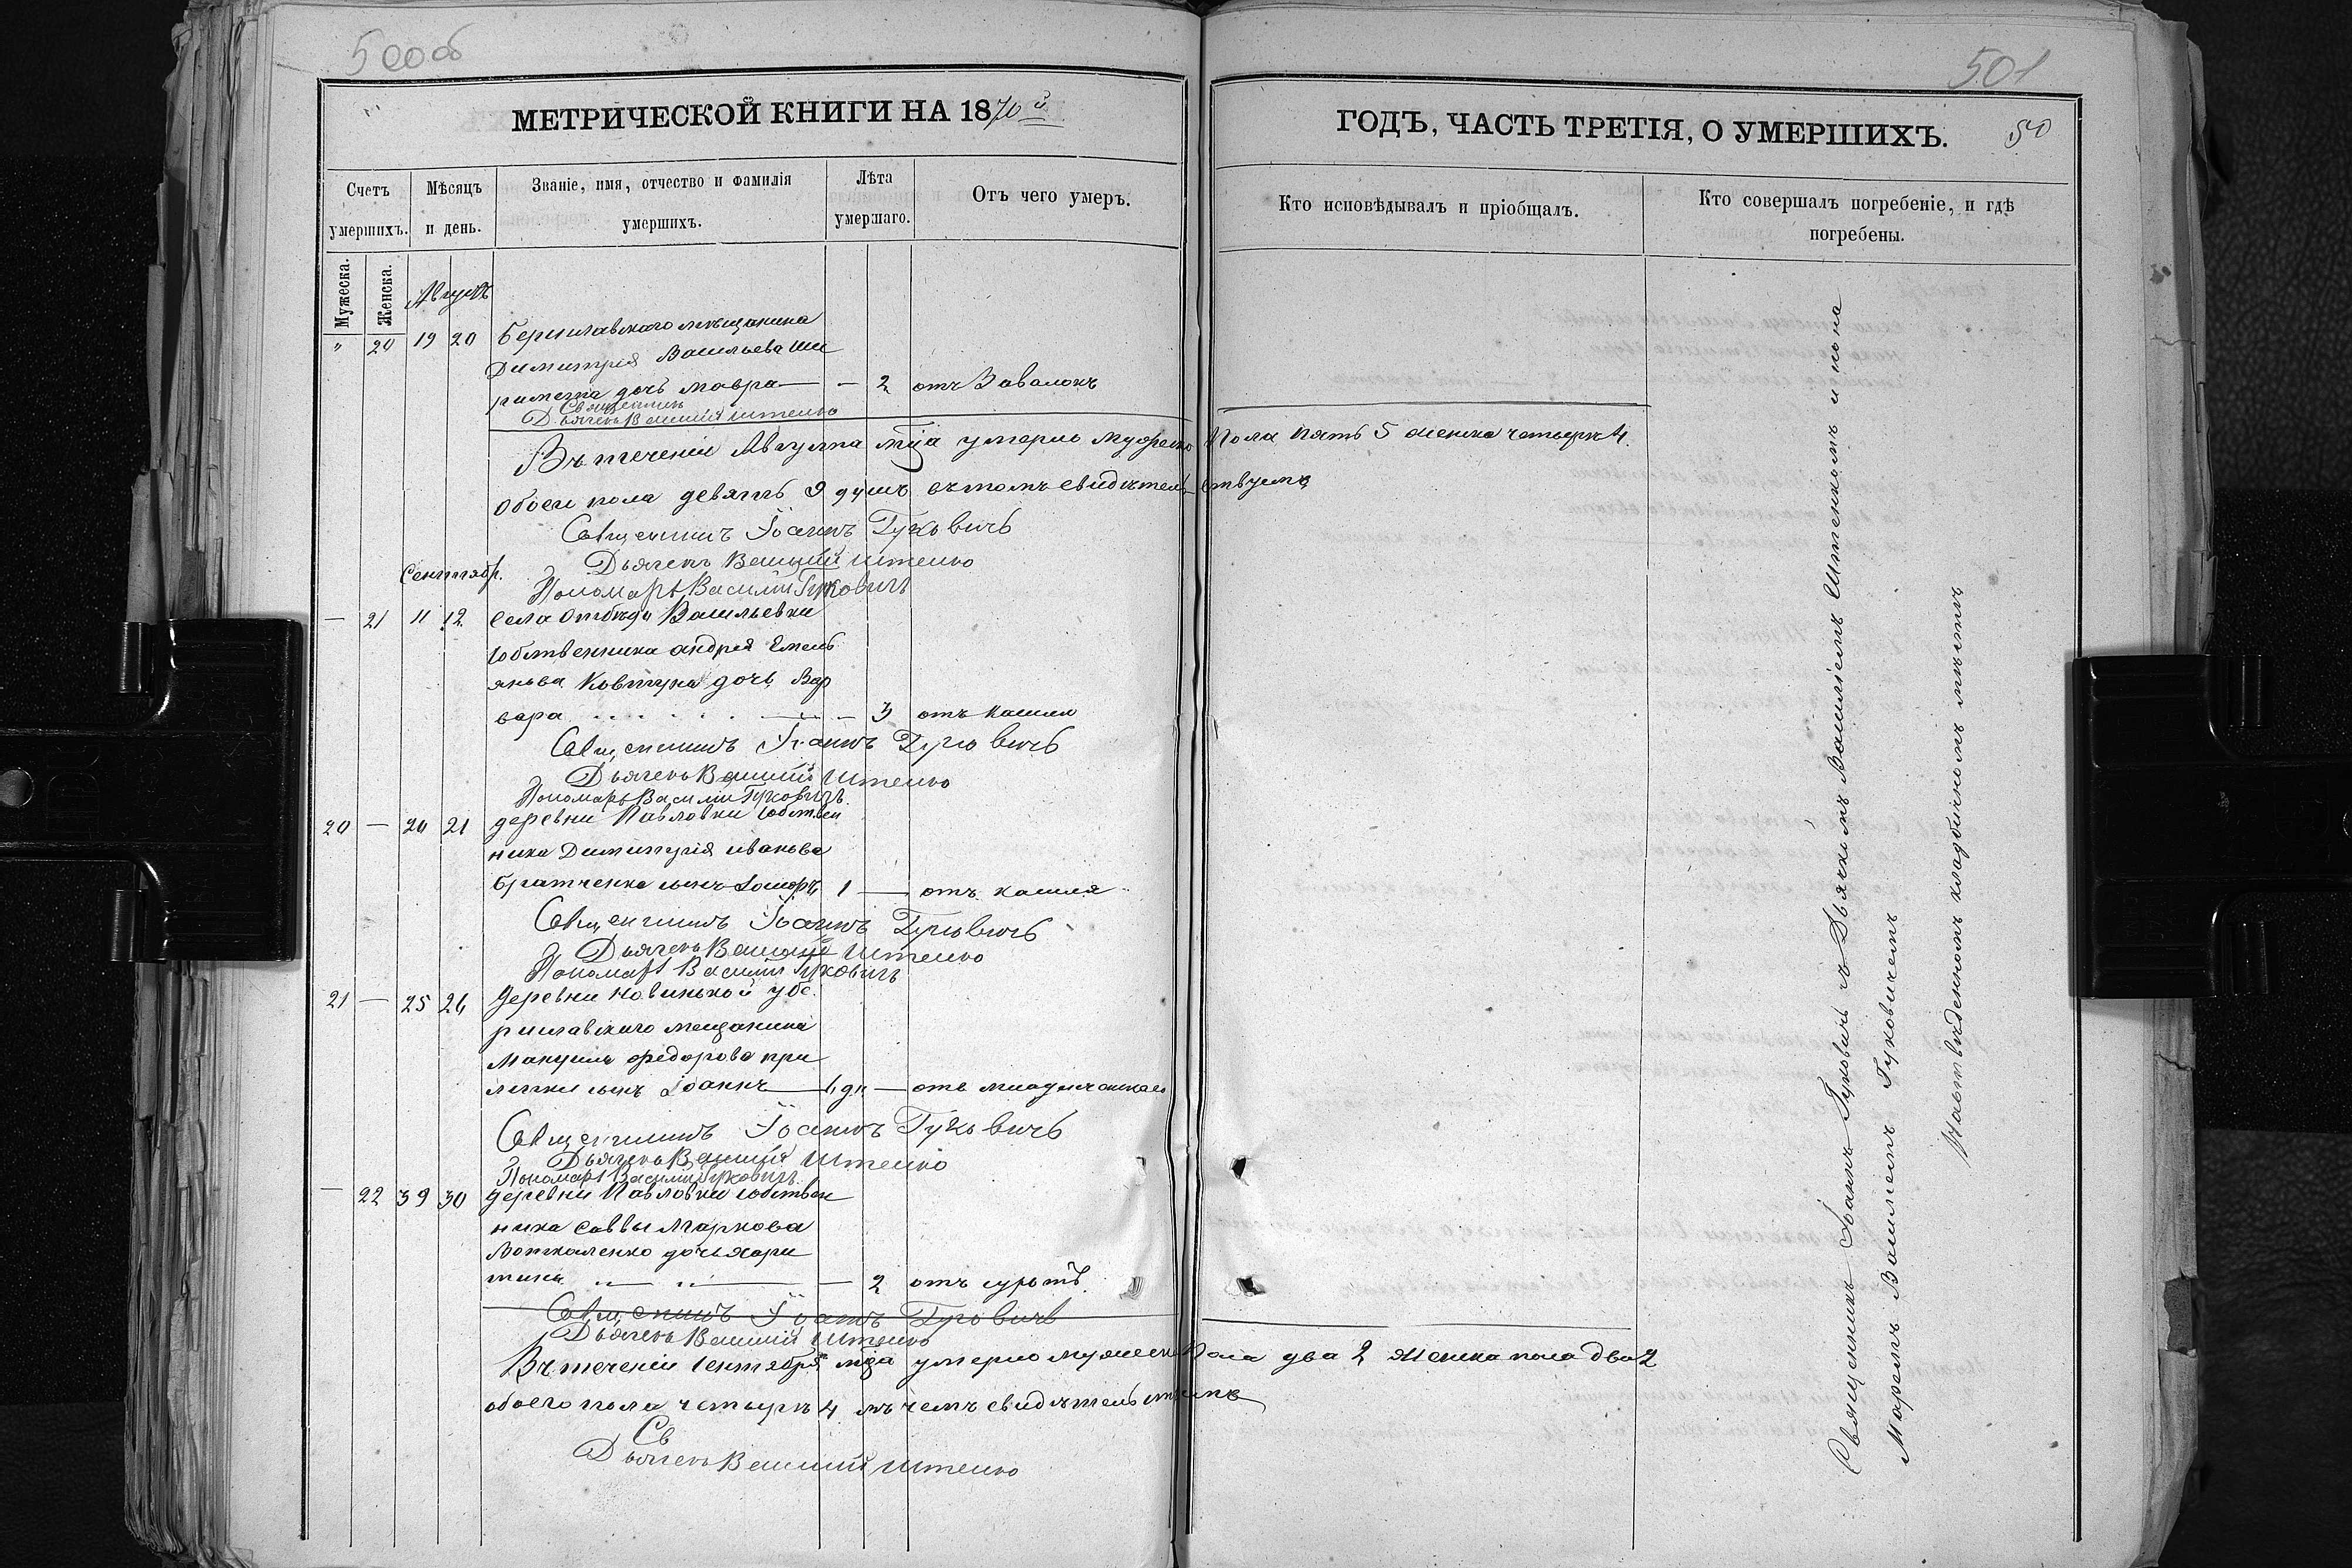 500об
501
МЕТРИЧЕСКОЙ КНИГИ НА 1870й
ГОДЪ, ЧАСТЬ ТРЕТІЯ, О УМЕРШИХЪ.
50
Счетъ умершихъ.
Мѣсяцъ и день.
Званіе, имя, отчество и фамилія умершихъ.
Лѣта умершаго.
Отъ чего умеръ.
Кто исповѣдывалъ и пріобщалъ.
Кто совершалъ погребеніе, и гдѣ погребены.
Мужеска.
Женска.
Августъ
" 20 19 20 Бериславскаго мѣщанина
Димитрія Васильева
дочь Мавра — — 2 отъ
Священникъ
Дьячекъ Василій Штенко
Въ теченіи Августа мца умерло мужеска пола пять 5 женска четыре 4.
обоего пола девять 9 душъ въ томъ свидѣтельствуемъ
Священникъ Іоаннъ Гуковичъ
Дьячекъ Василій Штенко
Сентябр.
Пономарь Василій Гуковичъ
— 21 11 12 Села Отбѣдо Васильевки
собственника Андрея Емель
янова Ковтуна дочь Вар
вара — — 3 отъ кашля
Священникъ Іоаннъ Гуковичъ
Дьячекъ Василій Штенко
Пономарь Василій Гуковичъ.
20 — 20 21 деревни Павловки собствен
ника Димитрія Иванова
Братченка сынъ 1 — отъ кашля
Священникъ Іоаннъ Гуковичъ
Дьячекъ Василій Штенко
Пономарь Василій Гуковичъ
21 — 25 26 деревни
риславскаго мещанина
Федорова при
сынъ Іоаннъ — дн — отъ младенческаго
Священникъ Іоаннъ Гуковичъ
Дьячекъ Василій Штенко
Пономарь Василій Гуковичъ.
— 22 39 30 деревни Павловки собствен
ника Саввы Маркова
дочь Хари
тина — — 2 отъ
Священникъ Іоаннъ Гуковичъ
Дьячекъ Василій Штенко
Въ теченіи Сентября мца умерло мужеска пола два 2 женска пола два 2
обоего пола четыре 4 въ чемъ свидѣтельствуемъ
Св
Дьячекъ Василій Штенко
Священникъ Іоаннъ Гуковичъ съ Дьячкомъ Василіемъ Штенкомъ и поно
маремъ Василіемъ Гуковичемъ
На отведенномъ кладбищномъ мѣстѣ